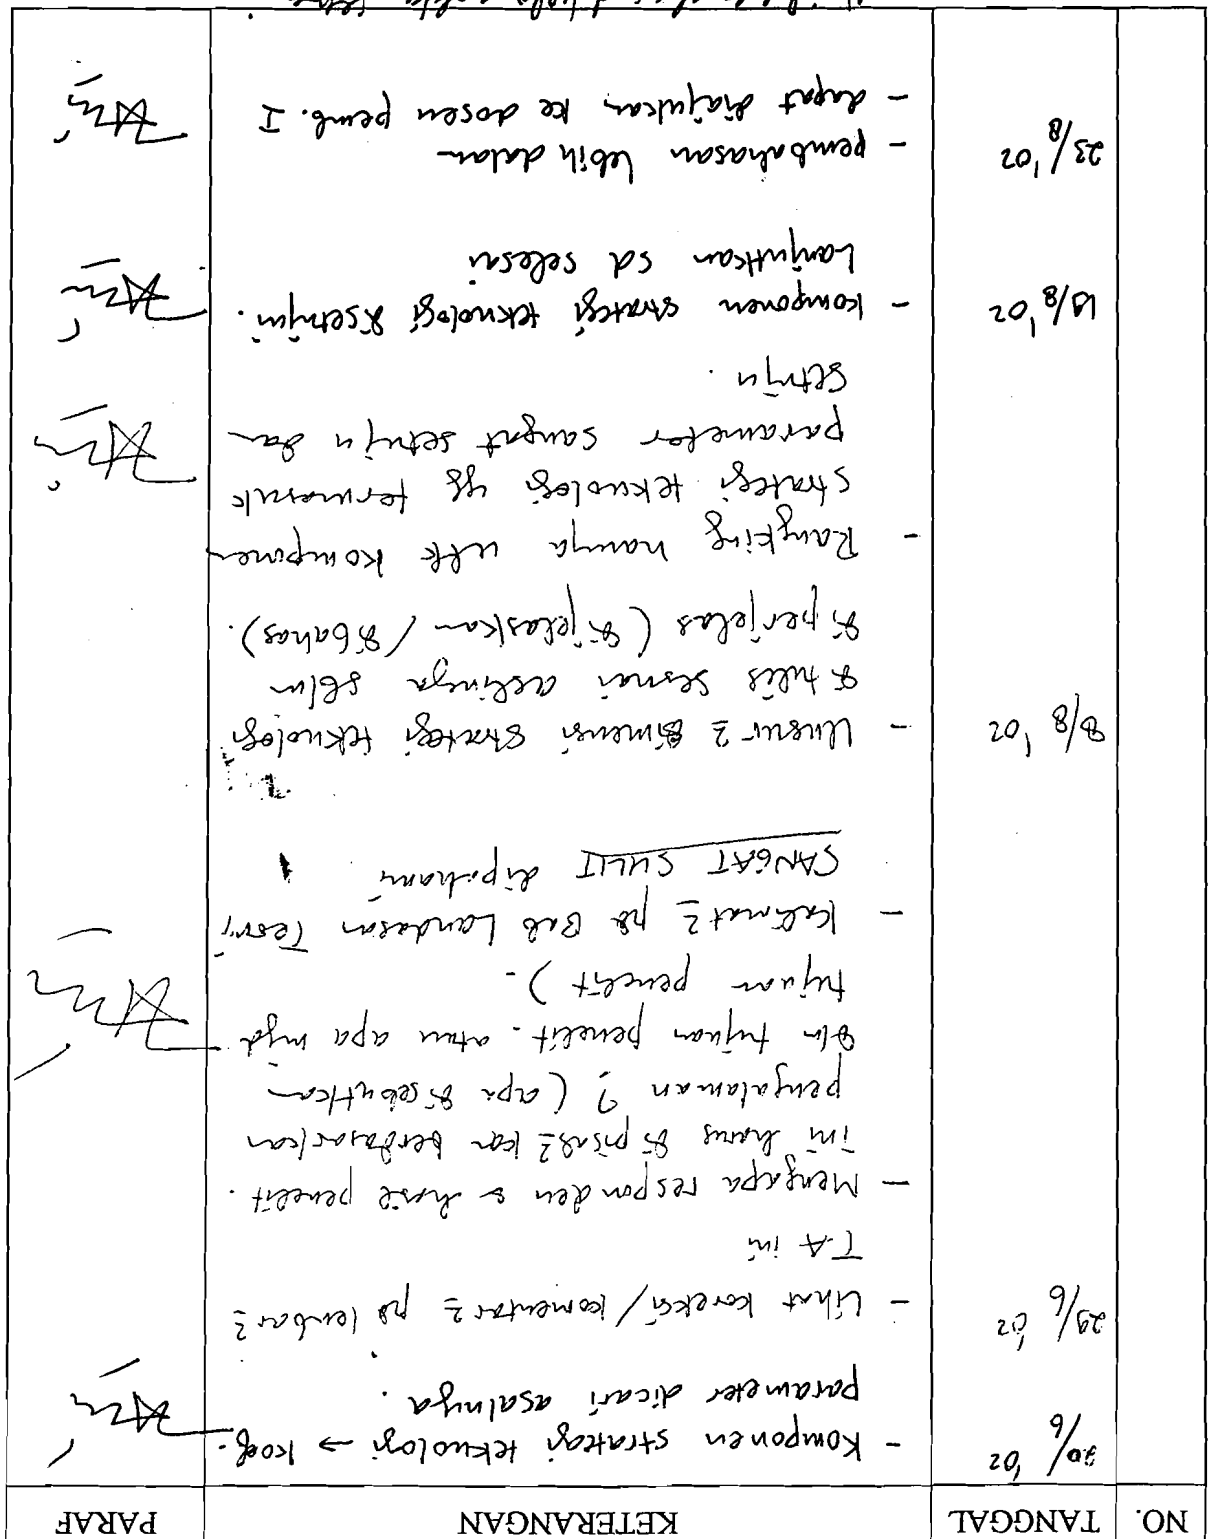 NO. TANGGAL KETERANGAN PARAF
20/6 '02 - Komponen strategi teknologi → koef.
parameter dicari asalnya.
29/6 02 - Lihat koreksi/komentar2 pd lembar2
T.A ini
- Mengapa responden & hasil penelit.
ini harus dipisah2kan berdasarkan
pengalaman ? (apa disebutkan
dlm tujuan penelit. atau apa mjd
tujuan penelit).
- Kalimat2 pd Bab Landasan Teori
SANGAT SULIT dipahami
8/8 '02 - Unsur2 dimensi strategi teknologi
ditulis sesuai aslinya sblm
diperjelas (dijelaskan / dibahas).
- Rangking hanya utk komponen
strategi teknologi yg termasuk
parameter sangat setuju dan
setuju.
/8 '02 - komponen strategi teknologi disetujui.
Lanjutkan sd selesai
23/8 '02 - pembahasan lebih dalam
- dapat diajukan ke dosen pemb. I